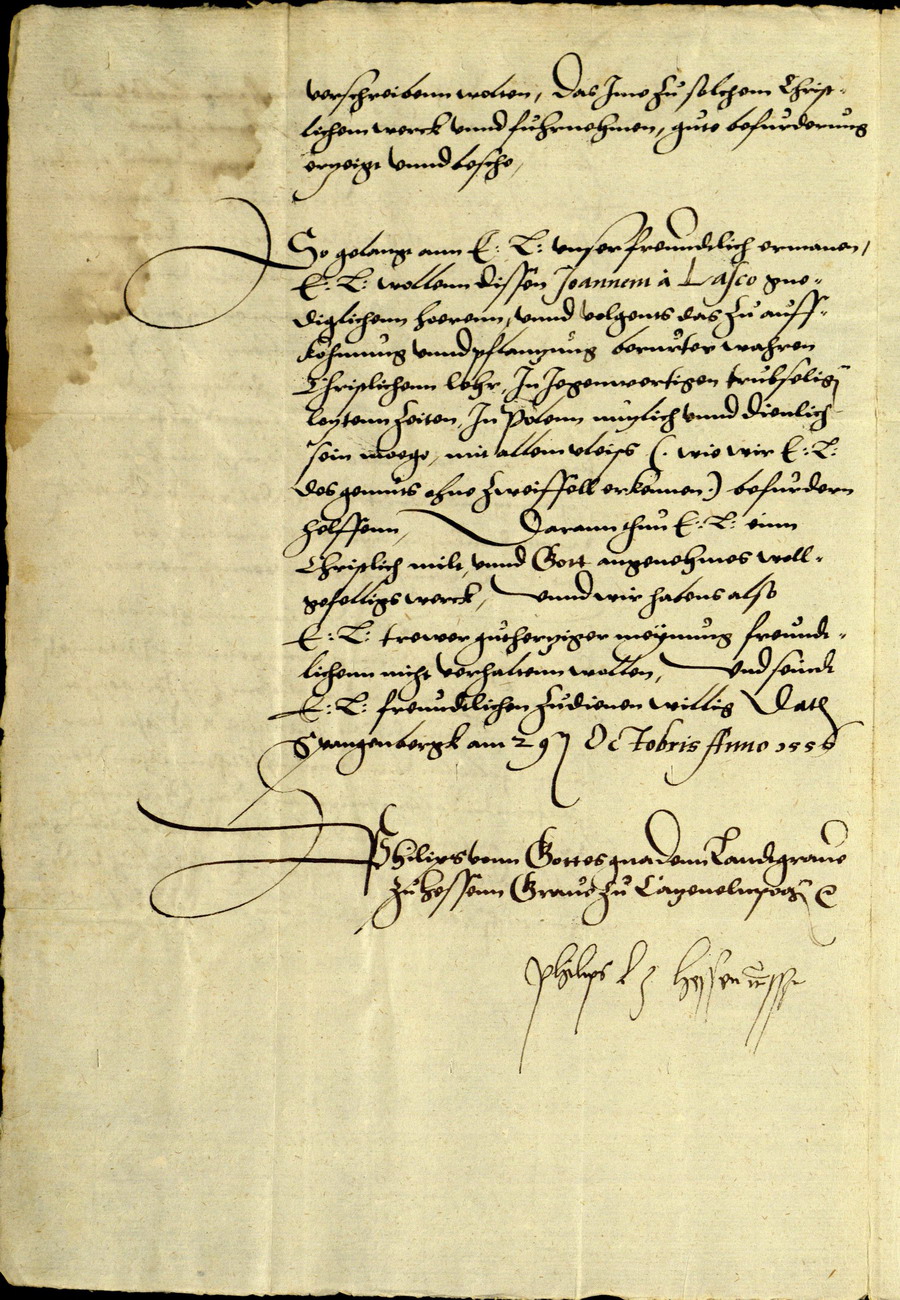 verschreibenn wolten, Das Ime zu solchem Christ-
lichem werck vnnd fuhrnehmen, gute befurderung
erzeigt vnnd beschee,
So gelangt ann E: L: vnser freundtlich ermanen,
E: L: wollenn dissen Joannem à Lasco gne-
diglichenn hoerenn, vnnd volgents das zu auff-
kohmung vnnd pflantzung berurter wahren
Christlichenn lehr, In Jegenwertigen trubseligen
letztenn Zeiten, In Polenn nutzlich vnnd dienlich
sein moege, mit allem vleiss (. wie wir E: L:
des gemuts ohne Zweiffell erkennen .) befurdern
helffenn, Darann thun E: L: einn
Christlich milt, vnnd Gott angenehmes woll-
gefelligs werck, vnnd wir habens also
E: L: trewer gutherziger meynung freundt-
lichenn nicht verhaltenn wollen, Vnd seindt
E: L: freundtlichen zudienen willig Dath
Spangenbergk am 29ten Octobris Anno 1556
Philips vonn Gottes gnadenn Landtgraue
zu Hessenn Graue zu Catzenelnpogen etc
Philips L z Hessen